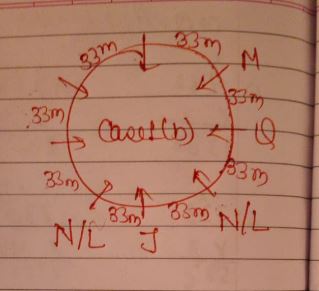 33m 33m
M
33m 33m
Case1(b) Q
33m 33m
33m 33m
N/L J N/L